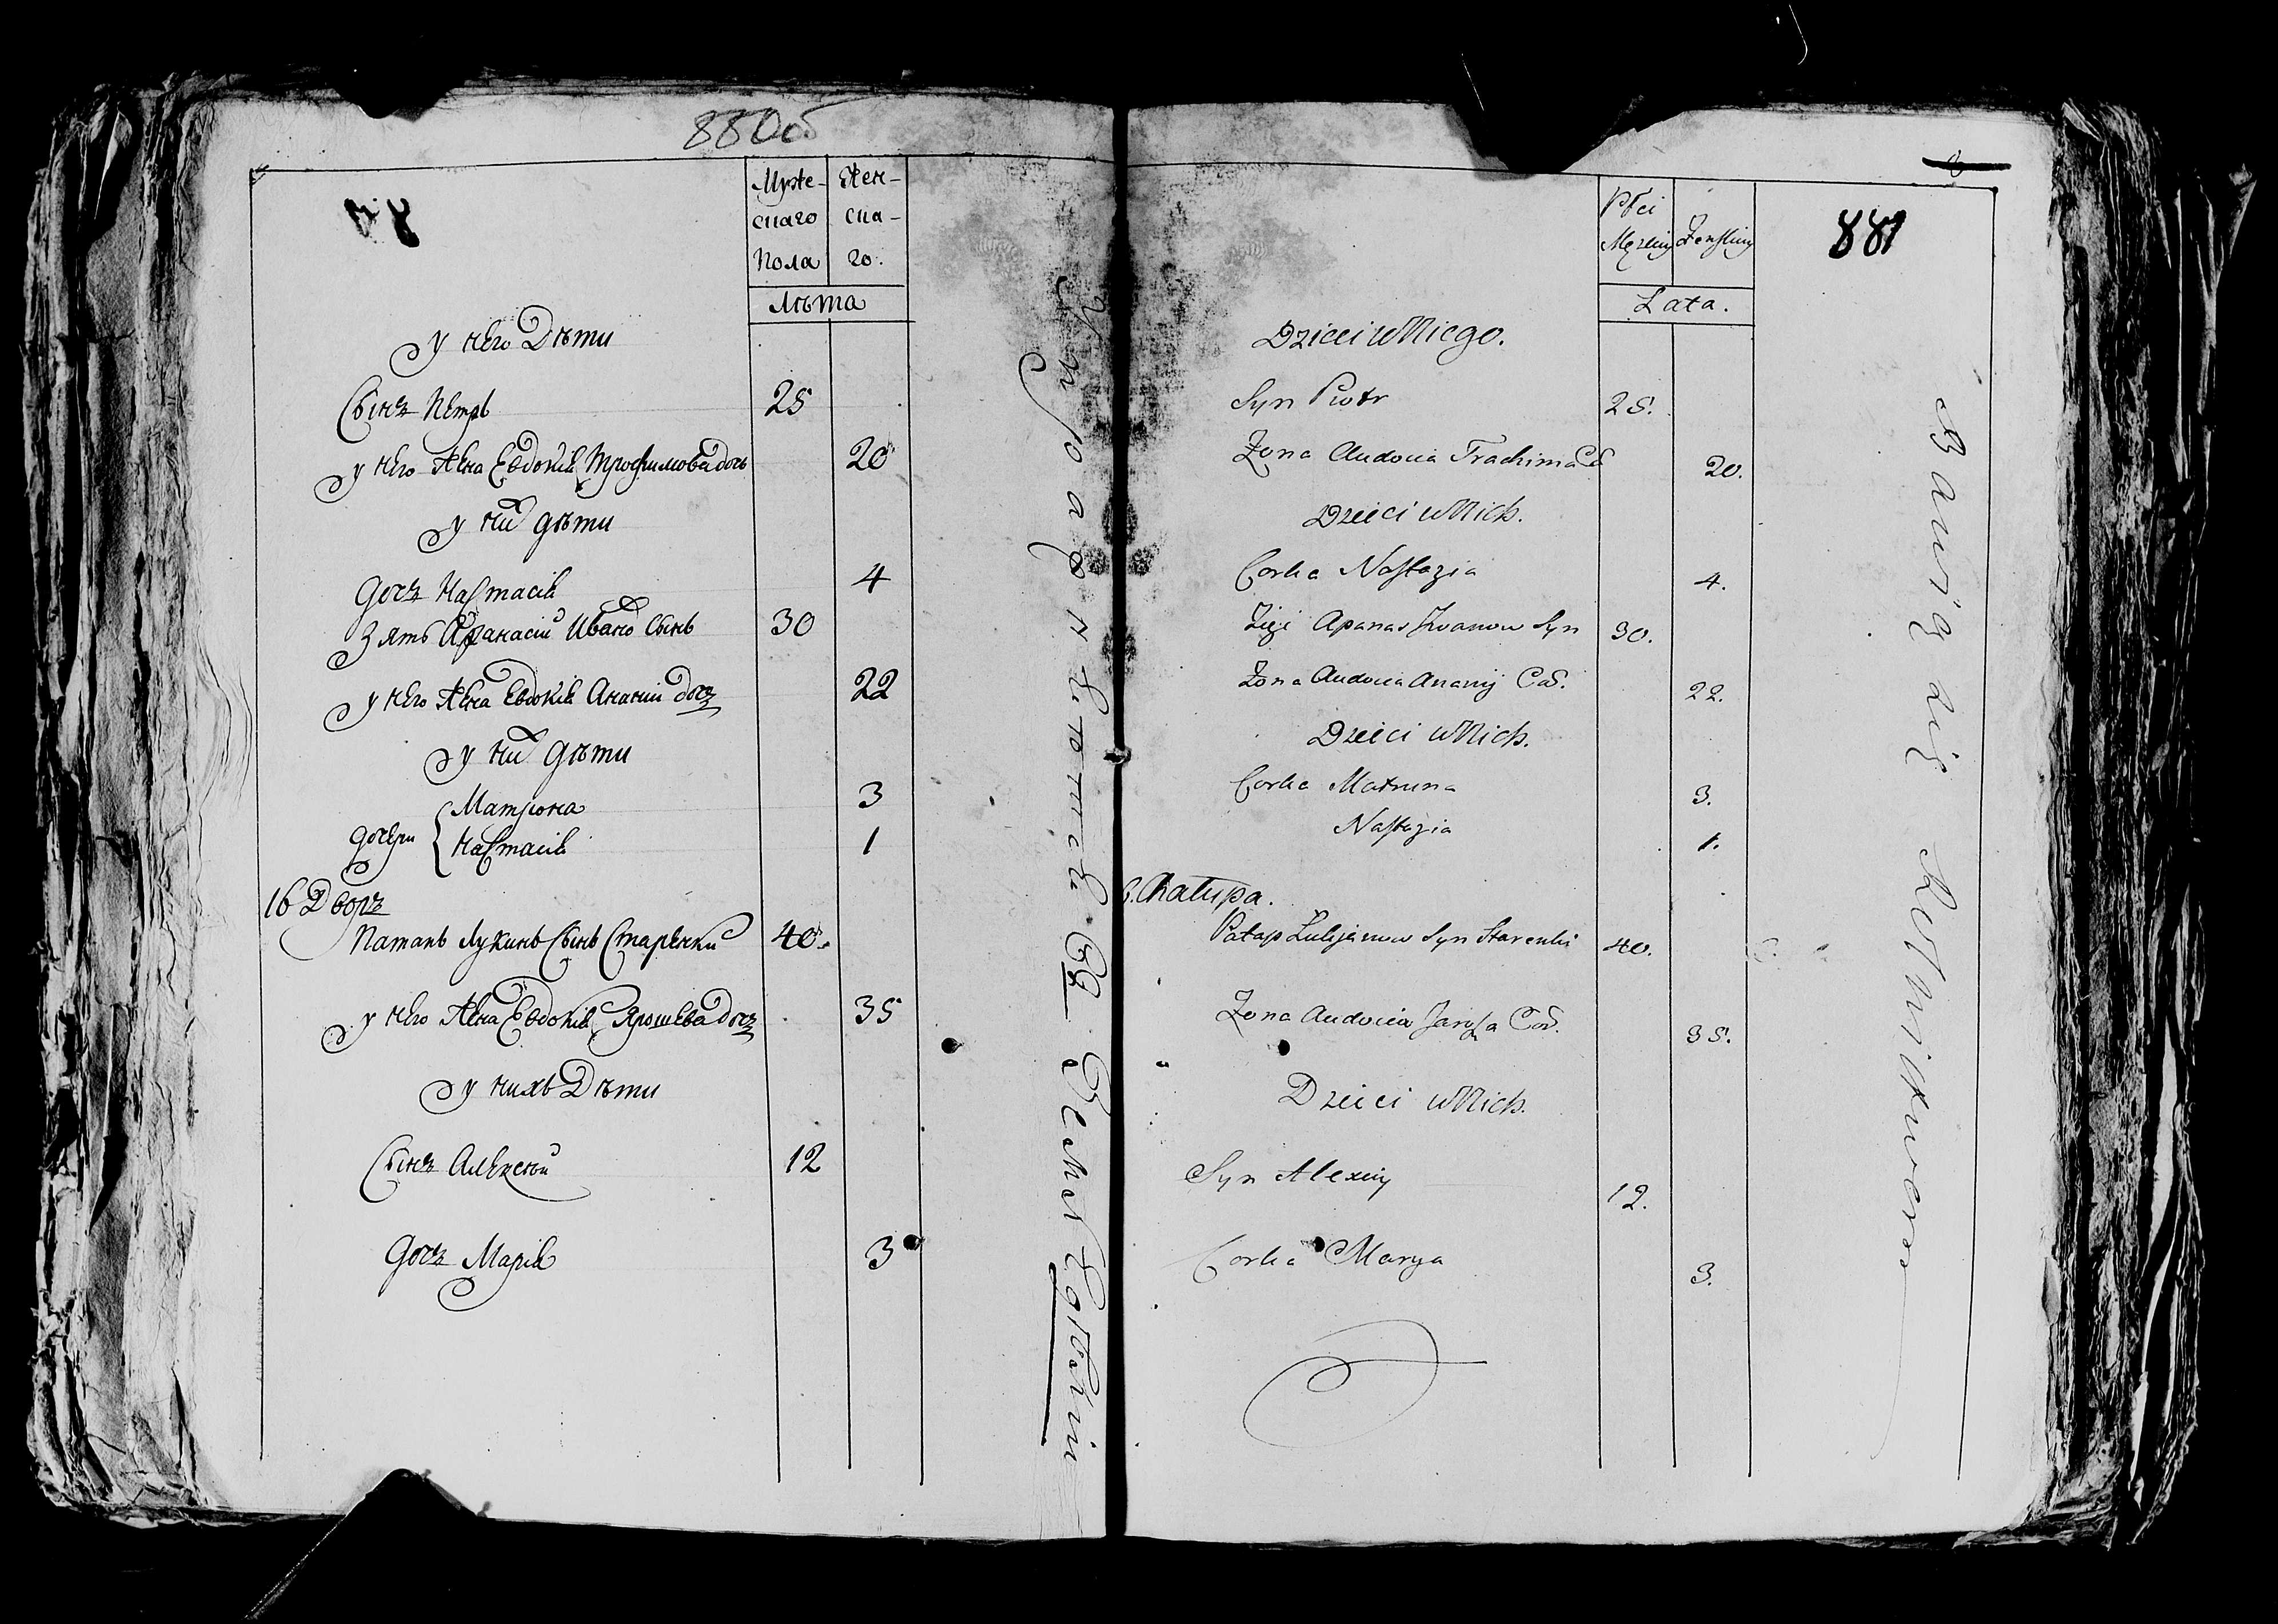 880об
Муже-
скаго
Пола
Жен-
ска-
го.
Лѣта
у него Дѣти
Сынъ Петръ 25
у него Жена Евдокия Трофимова дочь 20
у них дѣти
дочъ Настасія 4
Зять Афанасій Ивано Сынъ 30
у него Жена Евдокія Ананіи дочъ 22
у них дѣти
дочери Матрона 3
Настасія 1
16 Дворъ
Патапъ Лукинъ Сынъ Старенки 40.
у него Жена Евдокія Ярошева дочъ 35
у нихъ Дѣти
Сынъ Алексѣй 12
дочъ Марія 3
881
Płci
Męzkiy
Zenskiy
Lata.
Dzieci u Niego.
Syn Piotr 25.
Zona Audocia Trachima Co 20.
Dzieci u Nich.
Corka Nastazia 4.
Zięć Apanas Jwanow Syn 30.
Zona Audocia Ananij Cor. 22.
Dzieci u Nich.
Corka Matruna 3.
Nastazia 1.
6. Chałupa.
Patap Lukjanow Syn Starenki 40.
Zona Audocia Jarosza Cor. 35.
Dzieci u Nich.
Syn Alexiy 12.
Corka Marya 3.